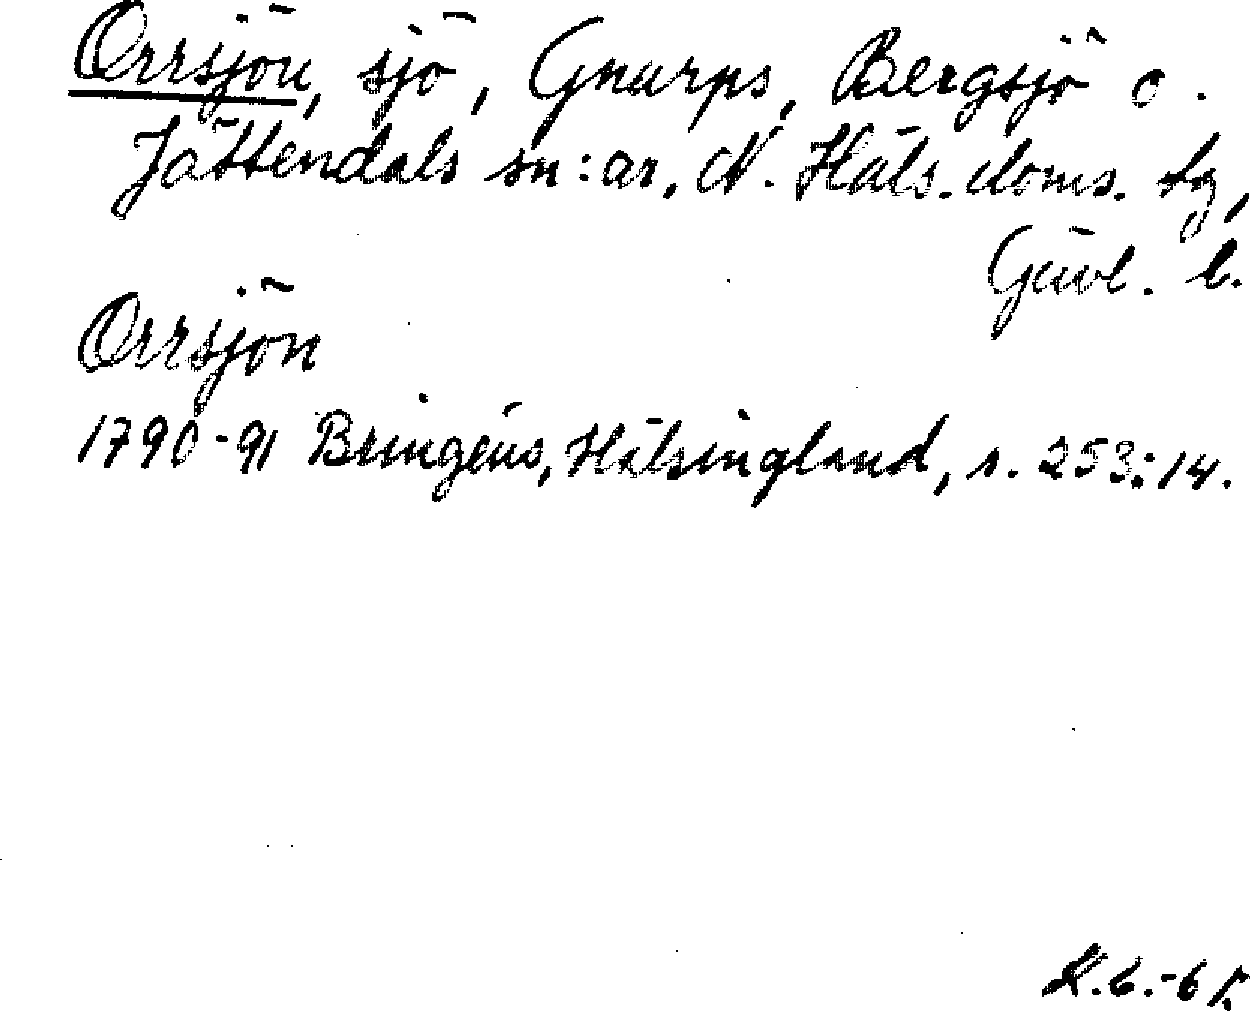 Orrsjön, sjö, Gnarps, Bergsjö o.
Jättendals sn:ar, N. Häls. doms. tg,
Gävl. l.
Orrsjön
1790-91 Bringéus, Hälsingland, s. 253:14.